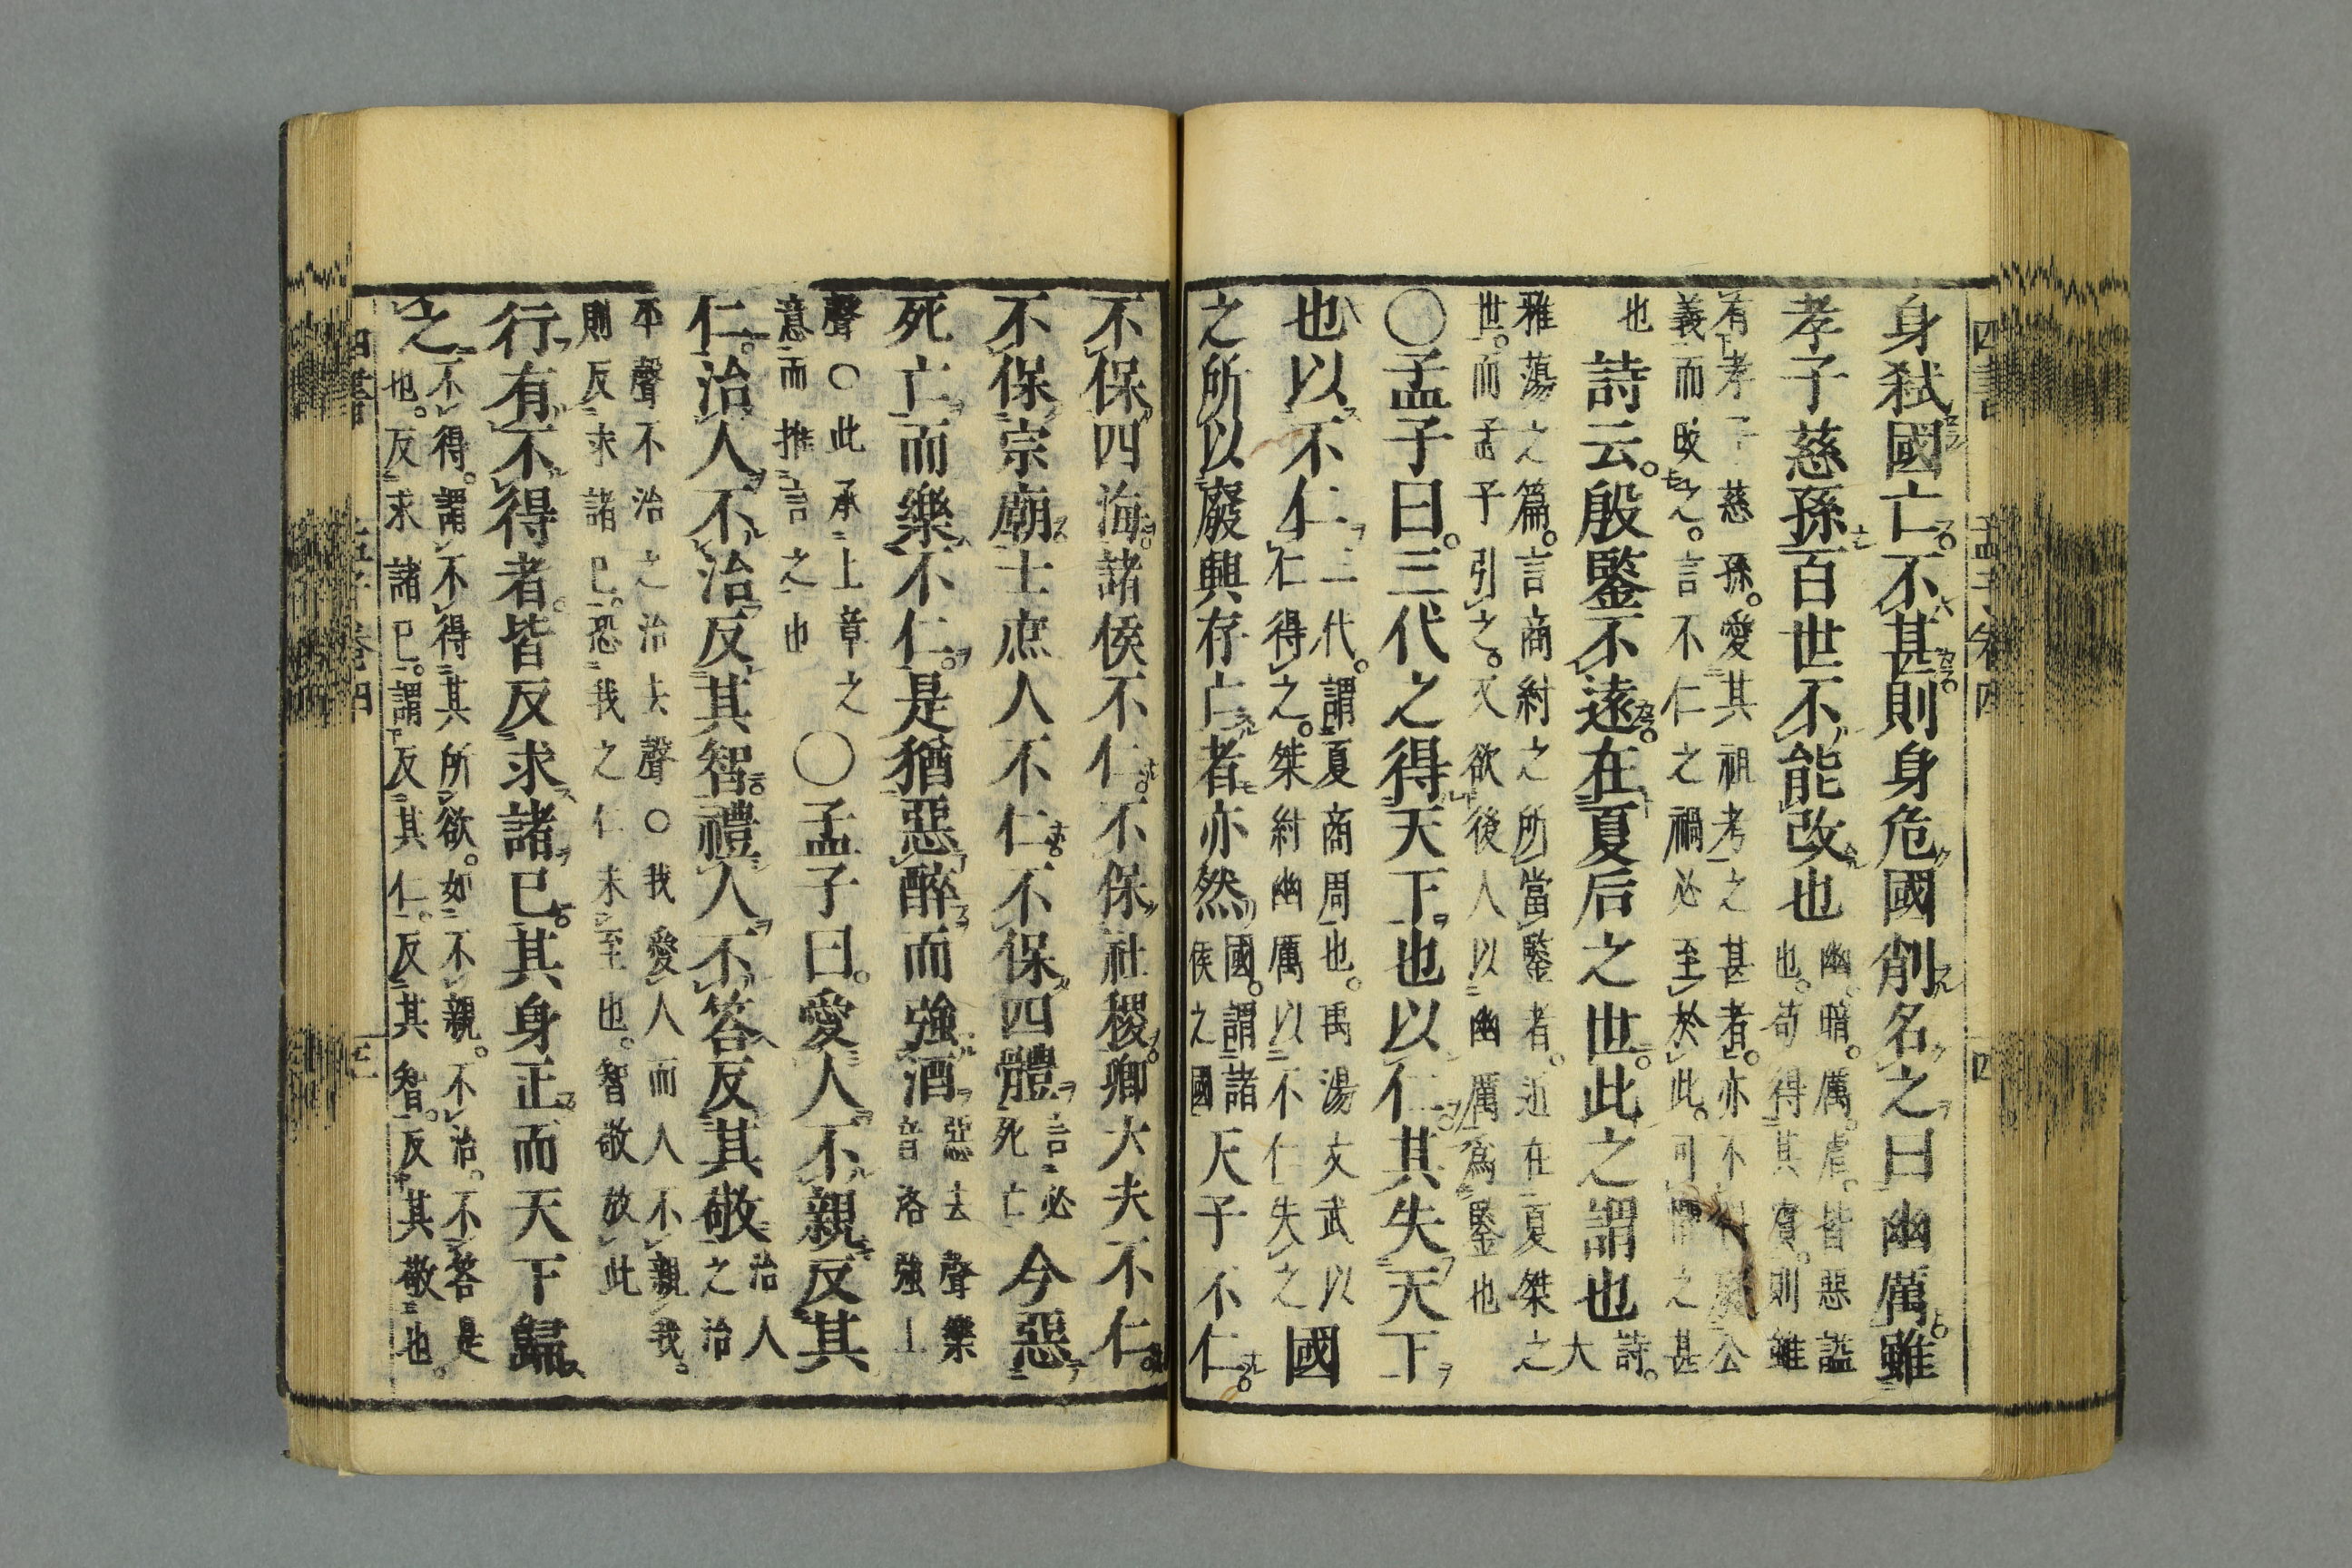 身弑國亡不甚則身危國削名之曰幽厲雖
孝子慈孫百世不能改也
幽暗厲虐皆惡謚
也苟得其實則雖
有孝子慈孫愛其祖考之甚者亦不得廢公
義而改之言不仁之禍必至於此可懼之甚
也
詩云殷鑒不遠在夏后之世此之謂也
詩大
雅蕩之篇言商紂之所當鑒者近在夏桀之
世而孟子引之又欲後人以幽厲爲鑒也
〇孟子曰三代之得天下也以仁其失天下
也以不仁
三代謂夏商周也禹湯文武以
仁得之桀紂幽厲以不仁失之
國
之所以廢興存亡者亦然
國謂諸
侯之國
天子不仁
不保四海諸侯不仁不保社稷卿大夫不仁
不保宗廟士庶人不仁不保四體
言必
死亡
今惡
死亡而樂不仁是猶惡醉而強酒
惡去聲樂
音洛強上
聲〇此承上章之
意而推言之也
〇孟子曰愛人不親反其
仁治人不治反其智禮人不答反其敬
治人
之治
平聲不治之治去聲〇我愛人而人不親我
則反求諸己恐我之仁未至也智敬放此
行有不得者皆反求諸己其身正而天下歸
之
不得謂不得其所欲如不親不治不答是
也反求諸己謂反其仁反其智反其敬也
四書
孟子卷四
四